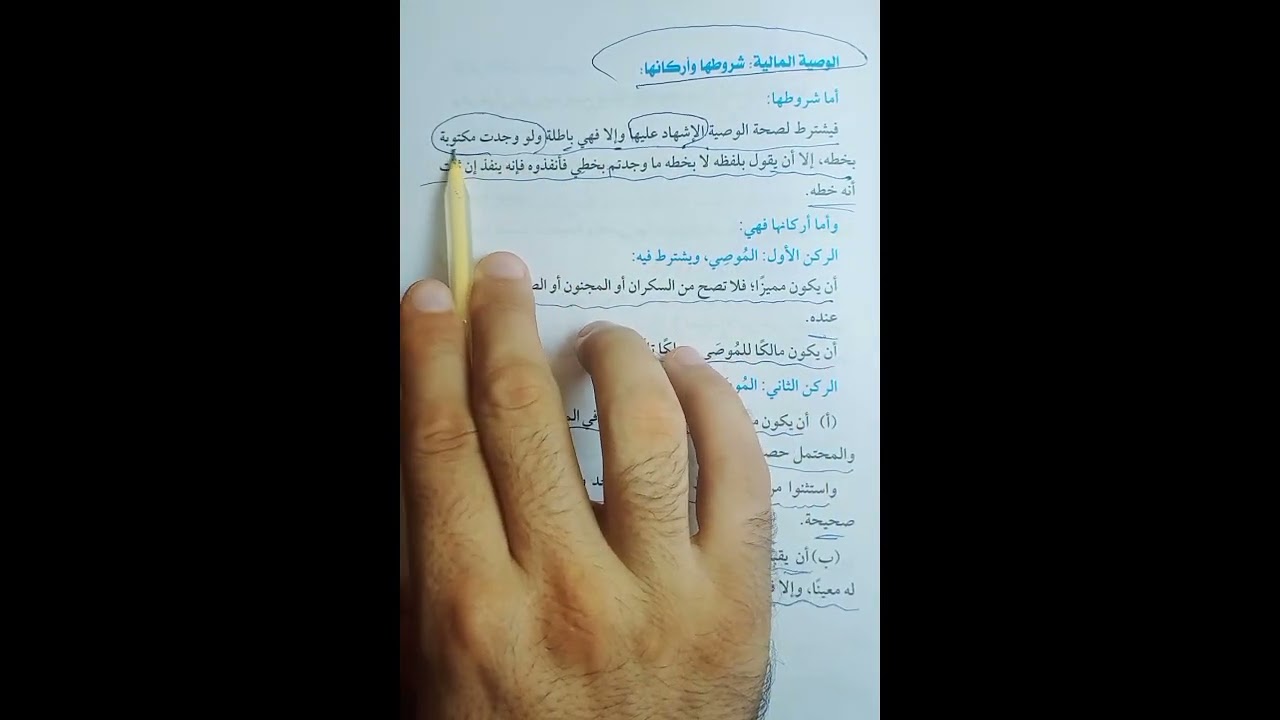 الوصية المالية: شروطها وأركانها:
أما شروطها:
فيشترط لصحة الوصية الإشهاد عليها وإلا فهي باطلة ولو وجدت مكتوبة
بخطه، إلا أن يقول بلفظه لا بخطه ما وجدتم بخطي فأنفذوه فإنه ينفذ إن
أنه خطه.
وأما أركانها فهي:
الركن الأول: المُوصِي، ويشترط فيه:
أن يكون مميزًا؛ فلا تصح من السكران أو المجنون أو
عنده.
أن يكون مالكًا للمُوصَى
الركن الثاني:
(أ) أن يكون في
والمحتمل
واستثنوا
صحيحة.
(ب) أن
له معينًا، وإلا